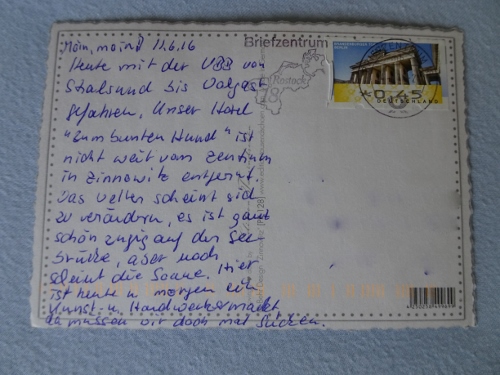 Moin, moin! 11.6.16
Heute mit der UBB von
Stralsund bis Wolgast
gefahren, Unser Hotel
"Zum bunten Hund" ist
nicht weit vom Zentrum
in Zinnowitz entfernt.
Das Wetter scheint sich
zu verändern, es ist ganz
schön zugig auf der See
brücke, aber noch
scheint die Sonne. Hier
ist heute u. morgen ein
Kunst u. Handwerkermarkt
da müssen wir doch mal gucken.
Briefzentrum
Rostock
0,45
DEUTSCHLAND